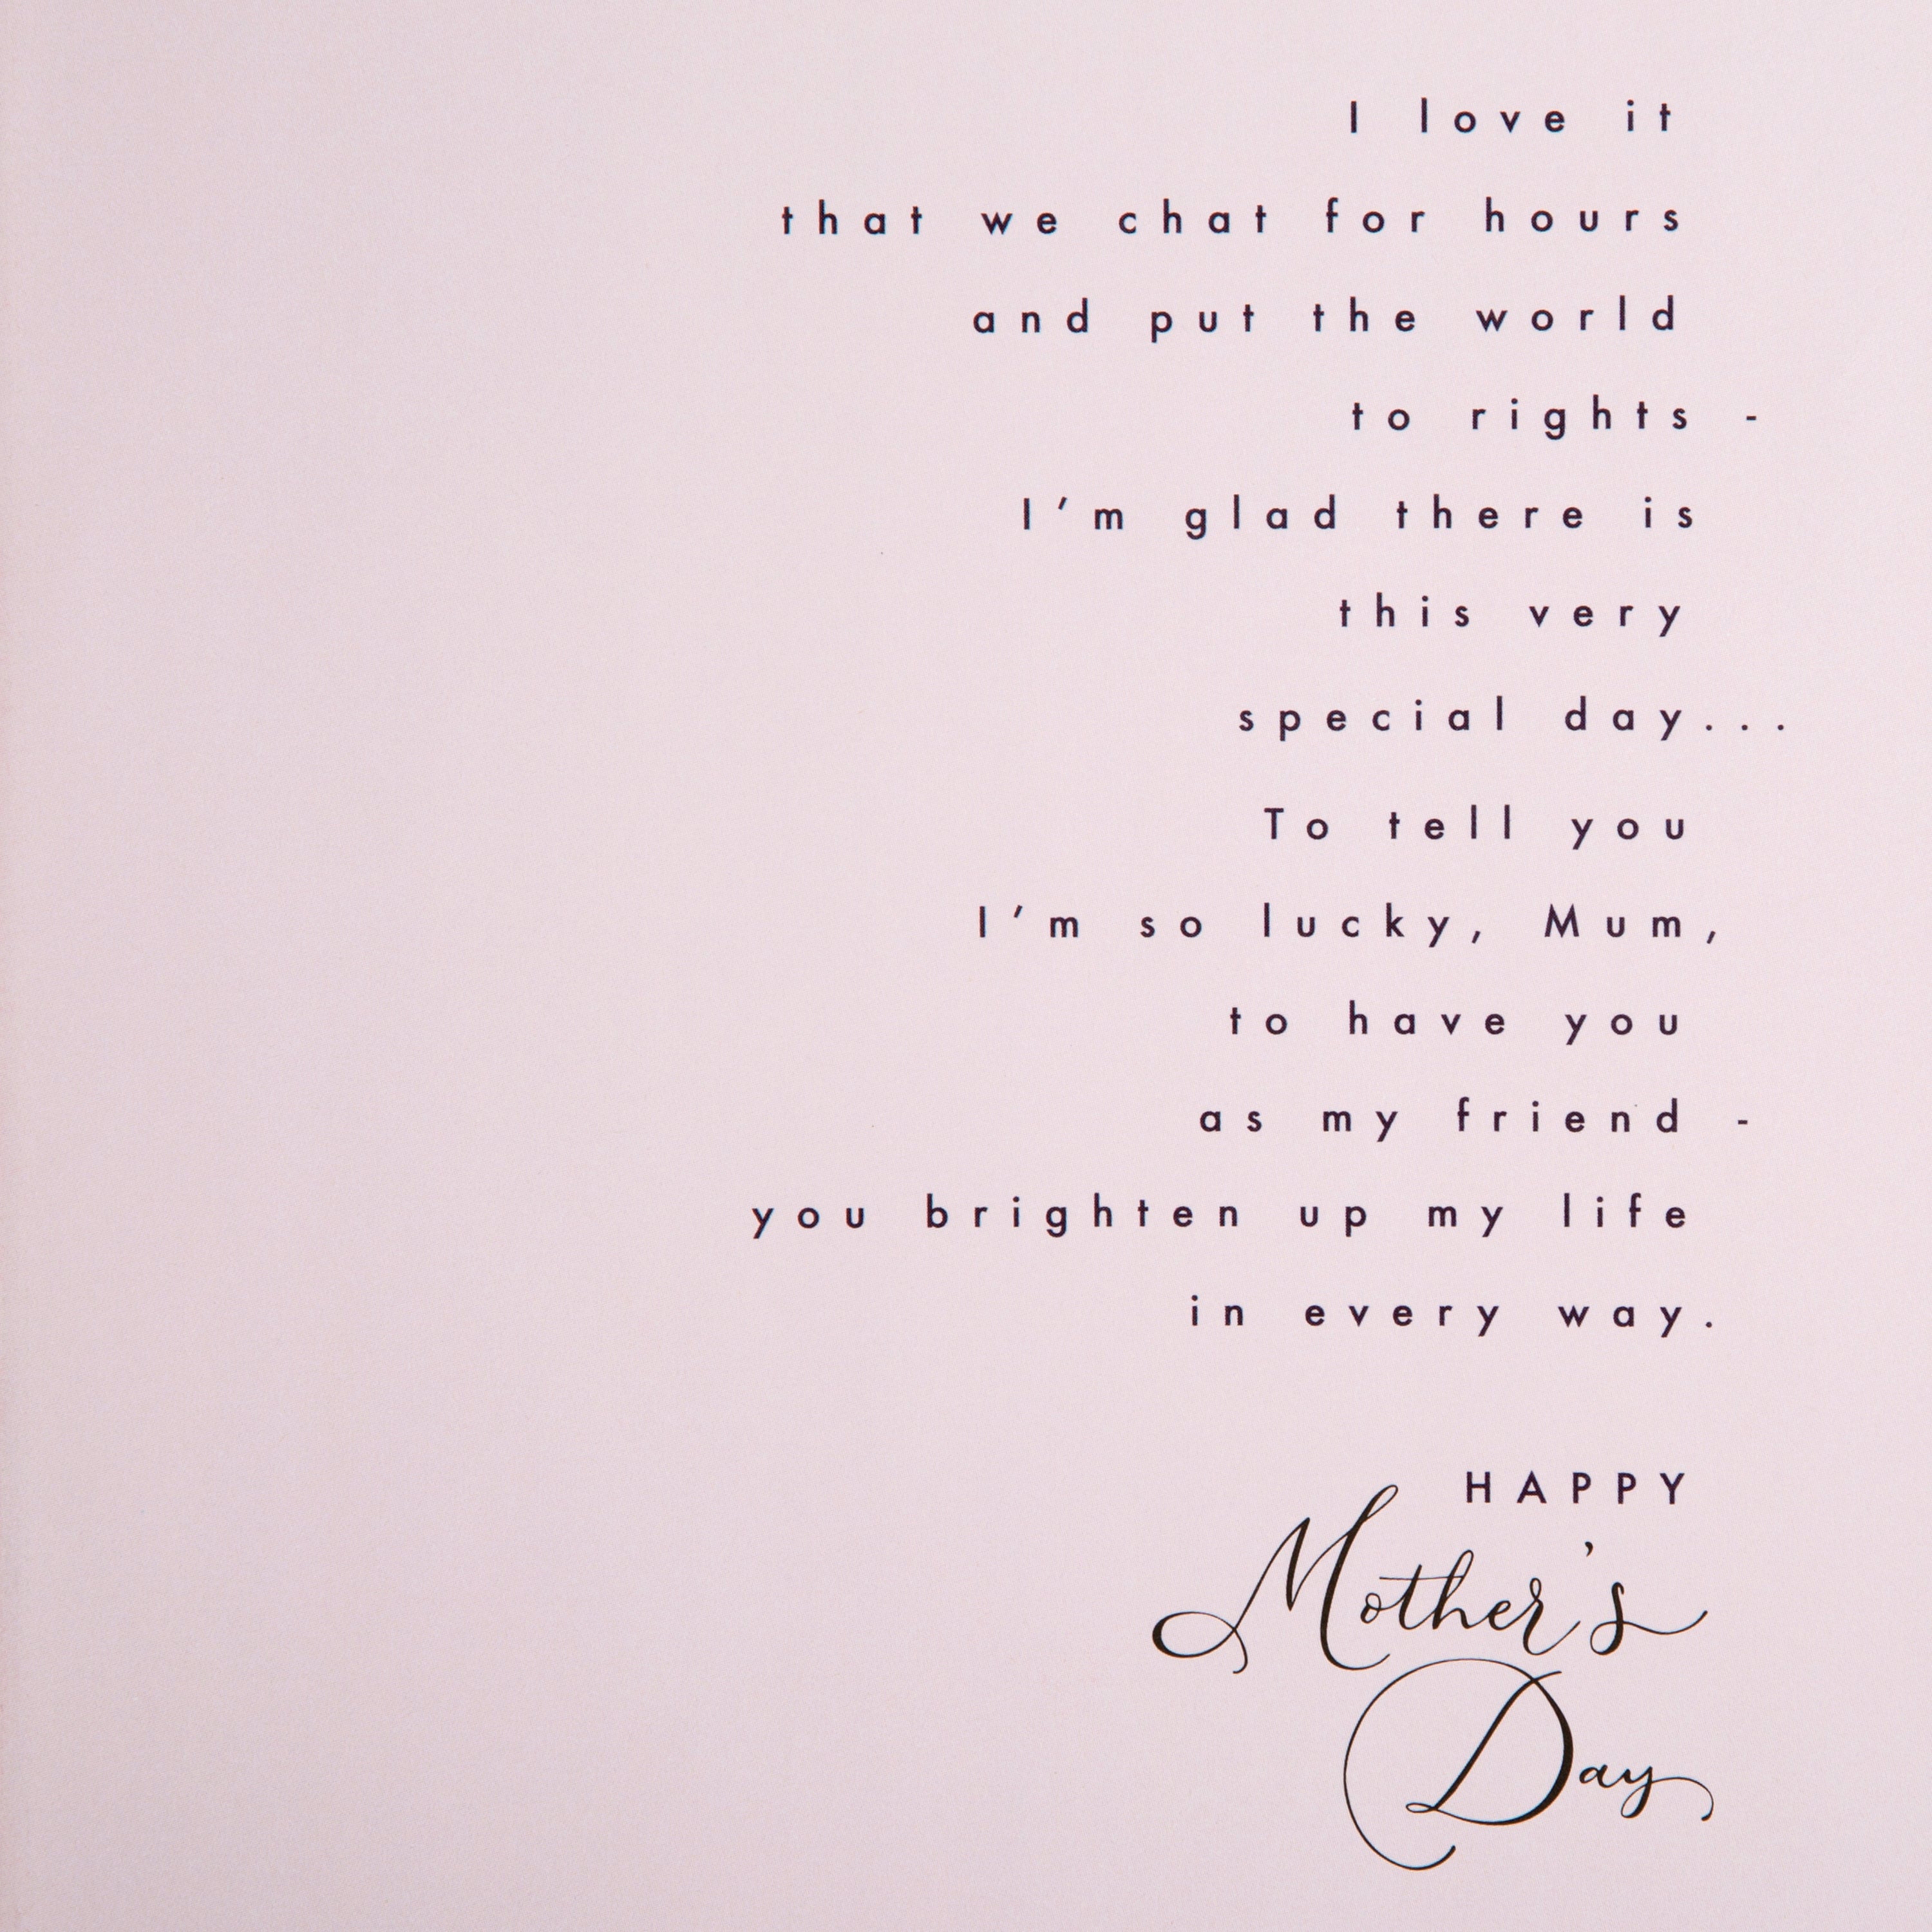 I love it
that we chat for hours
and put the world
to rights -
I'm glad there is
this very
special day...
To tell you
I'm so lucky, Mum,
to have you
as my friend -
you brighten up my life
in every way.
HAPPY
Mother's
Day